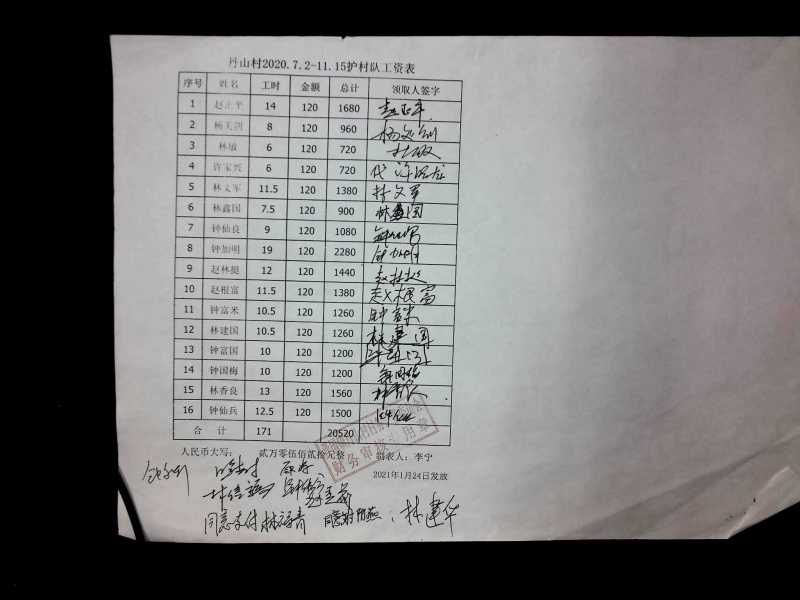 丹山村2020.7.2-11.15护村队工资表
序号 姓名 工时 金额 总计 领取人签字
1 赵正平 14 120 1680 赵正平
2 8 120 960
3 林敏 6 120 720 林敏
4 许家兴 6 120 720 代 许
5 林文军 11.5 120 1380 林文军
6 林鑫国 7.5 120 900 林鑫国
7 钟仙良 9 120 1080
8 钟加明 19 120 2280 钟加明
9 赵林挺 12 120 1440 赵林挺
10 赵根富 11.5 120 1380 赵根富
11 钟富米 10.5 120 1260 钟富米
12 林建国 10.5 120 1260 林建国
13 钟富国 10 120 1200
14 钟国梅 10 120 1200
15 林香良 13 120 1560 林香良
16 钟仙兵 12.5 120 1500
合 计 171 20520
财务审核专用章
人民币大写: 贰万零伍佰贰拾元整 制表人:李宁
2021年1月24日发放
同意支付 林 青 同意 林建华